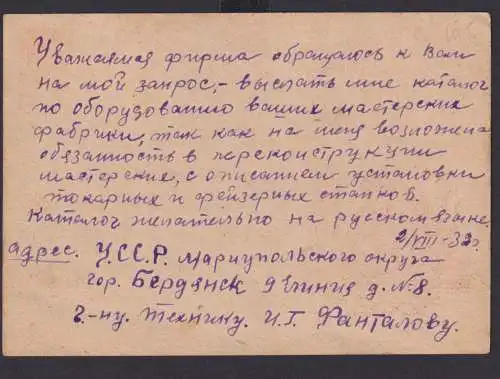 Уважаемая фирма обращаюсь к Вам
на мой запрос,- выслать мне каталог
по оборудованию ваших мастерских
фабрики, так как на меня возложена
обязанность в переконструкции
мастерские, с описанием установки
токарных и фейзерных станков.
Каталог желательно на русском языке.
2/VIII-32г.
Адрес. У.С.С.Р. Мариупольского округа
гор. Бердянск 9 Линия д. №8.
г-ну. технику. И.Г. Фанталову.